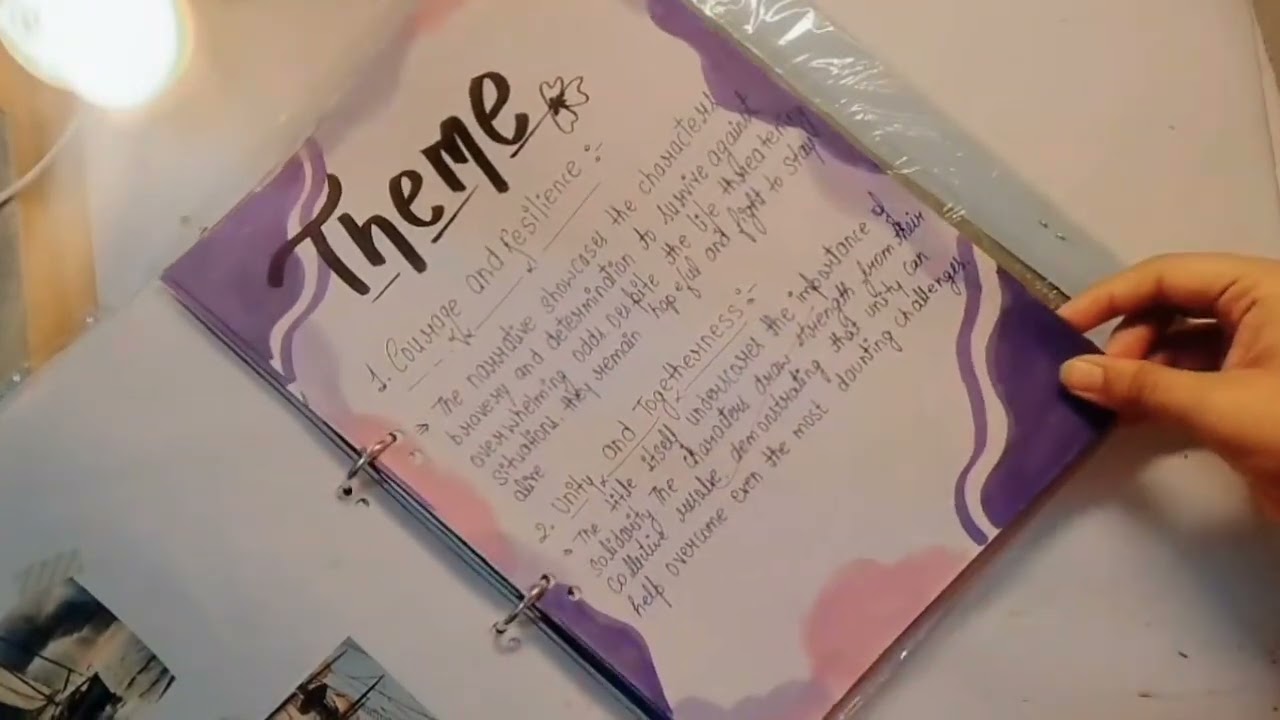 Theme
1. Courage and Resilience :-
⇒ The narrative showcases the characters
bravery and determination to survive against
overwhelming odds. Despite the life threatening
situations, they remain hopeful and fight to stay
alive
2. Unity and Togetherness :-
The title itself underscores the importance of
solidarity The characters draw strength from their
collective resolve demonstrating that unity can
help overcome even the most daunting challenges.